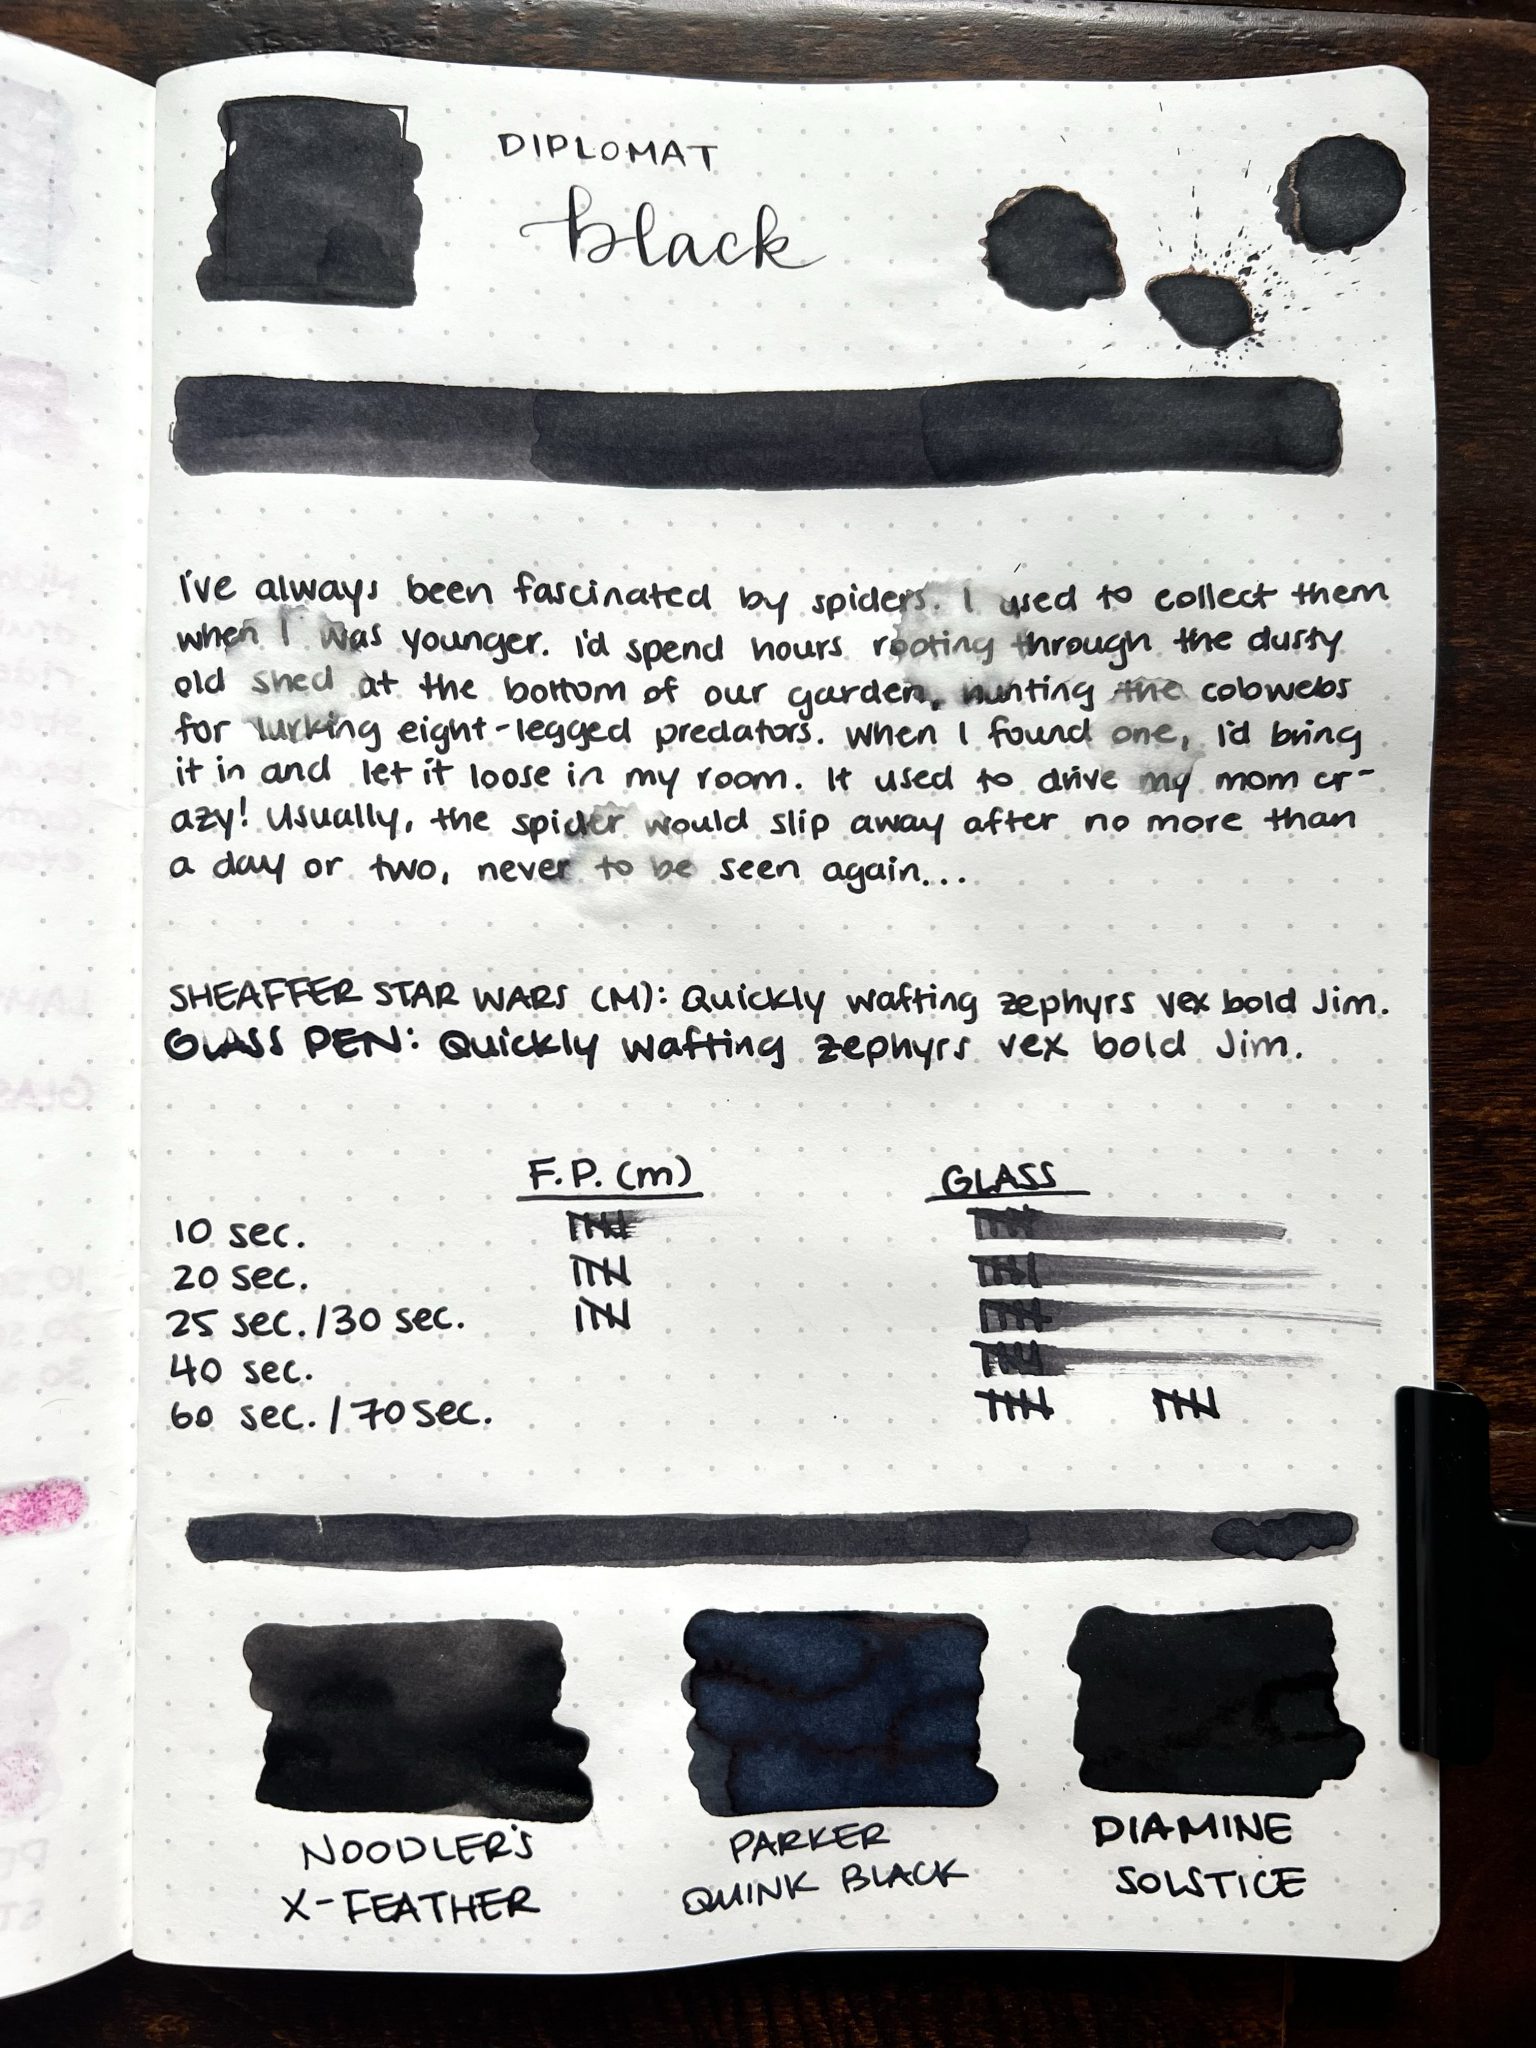 DIPLOMAT
black
I've always been fascinated by spiders. I used to collect them
when I was younger. I'd spend hours rooting through the dusty
old shed at the bottom of our garden, hunting the cobwebs
for lurking eight-legged predators. When I found one, I'd bring
it in and let it loose in my room. It used to drive my mom cr-
azy! Usually, the spider would slip away after no more than
a day or two, never to be seen again...
SHEAFFER STAR WARS (M): Quickly wafting zephyrs vex bold Jim.
GLASS PEN: Quickly wafting zephyrs vex bold Jim.
F.P. (m) GLASS
10 sec.
20 sec.
25 sec./30 sec.
40 sec.
60 sec./70 sec.
NOODLER'S
X-FEATHER
PARKER
QUINK BLACK
DIAMINE
SOLSTICE